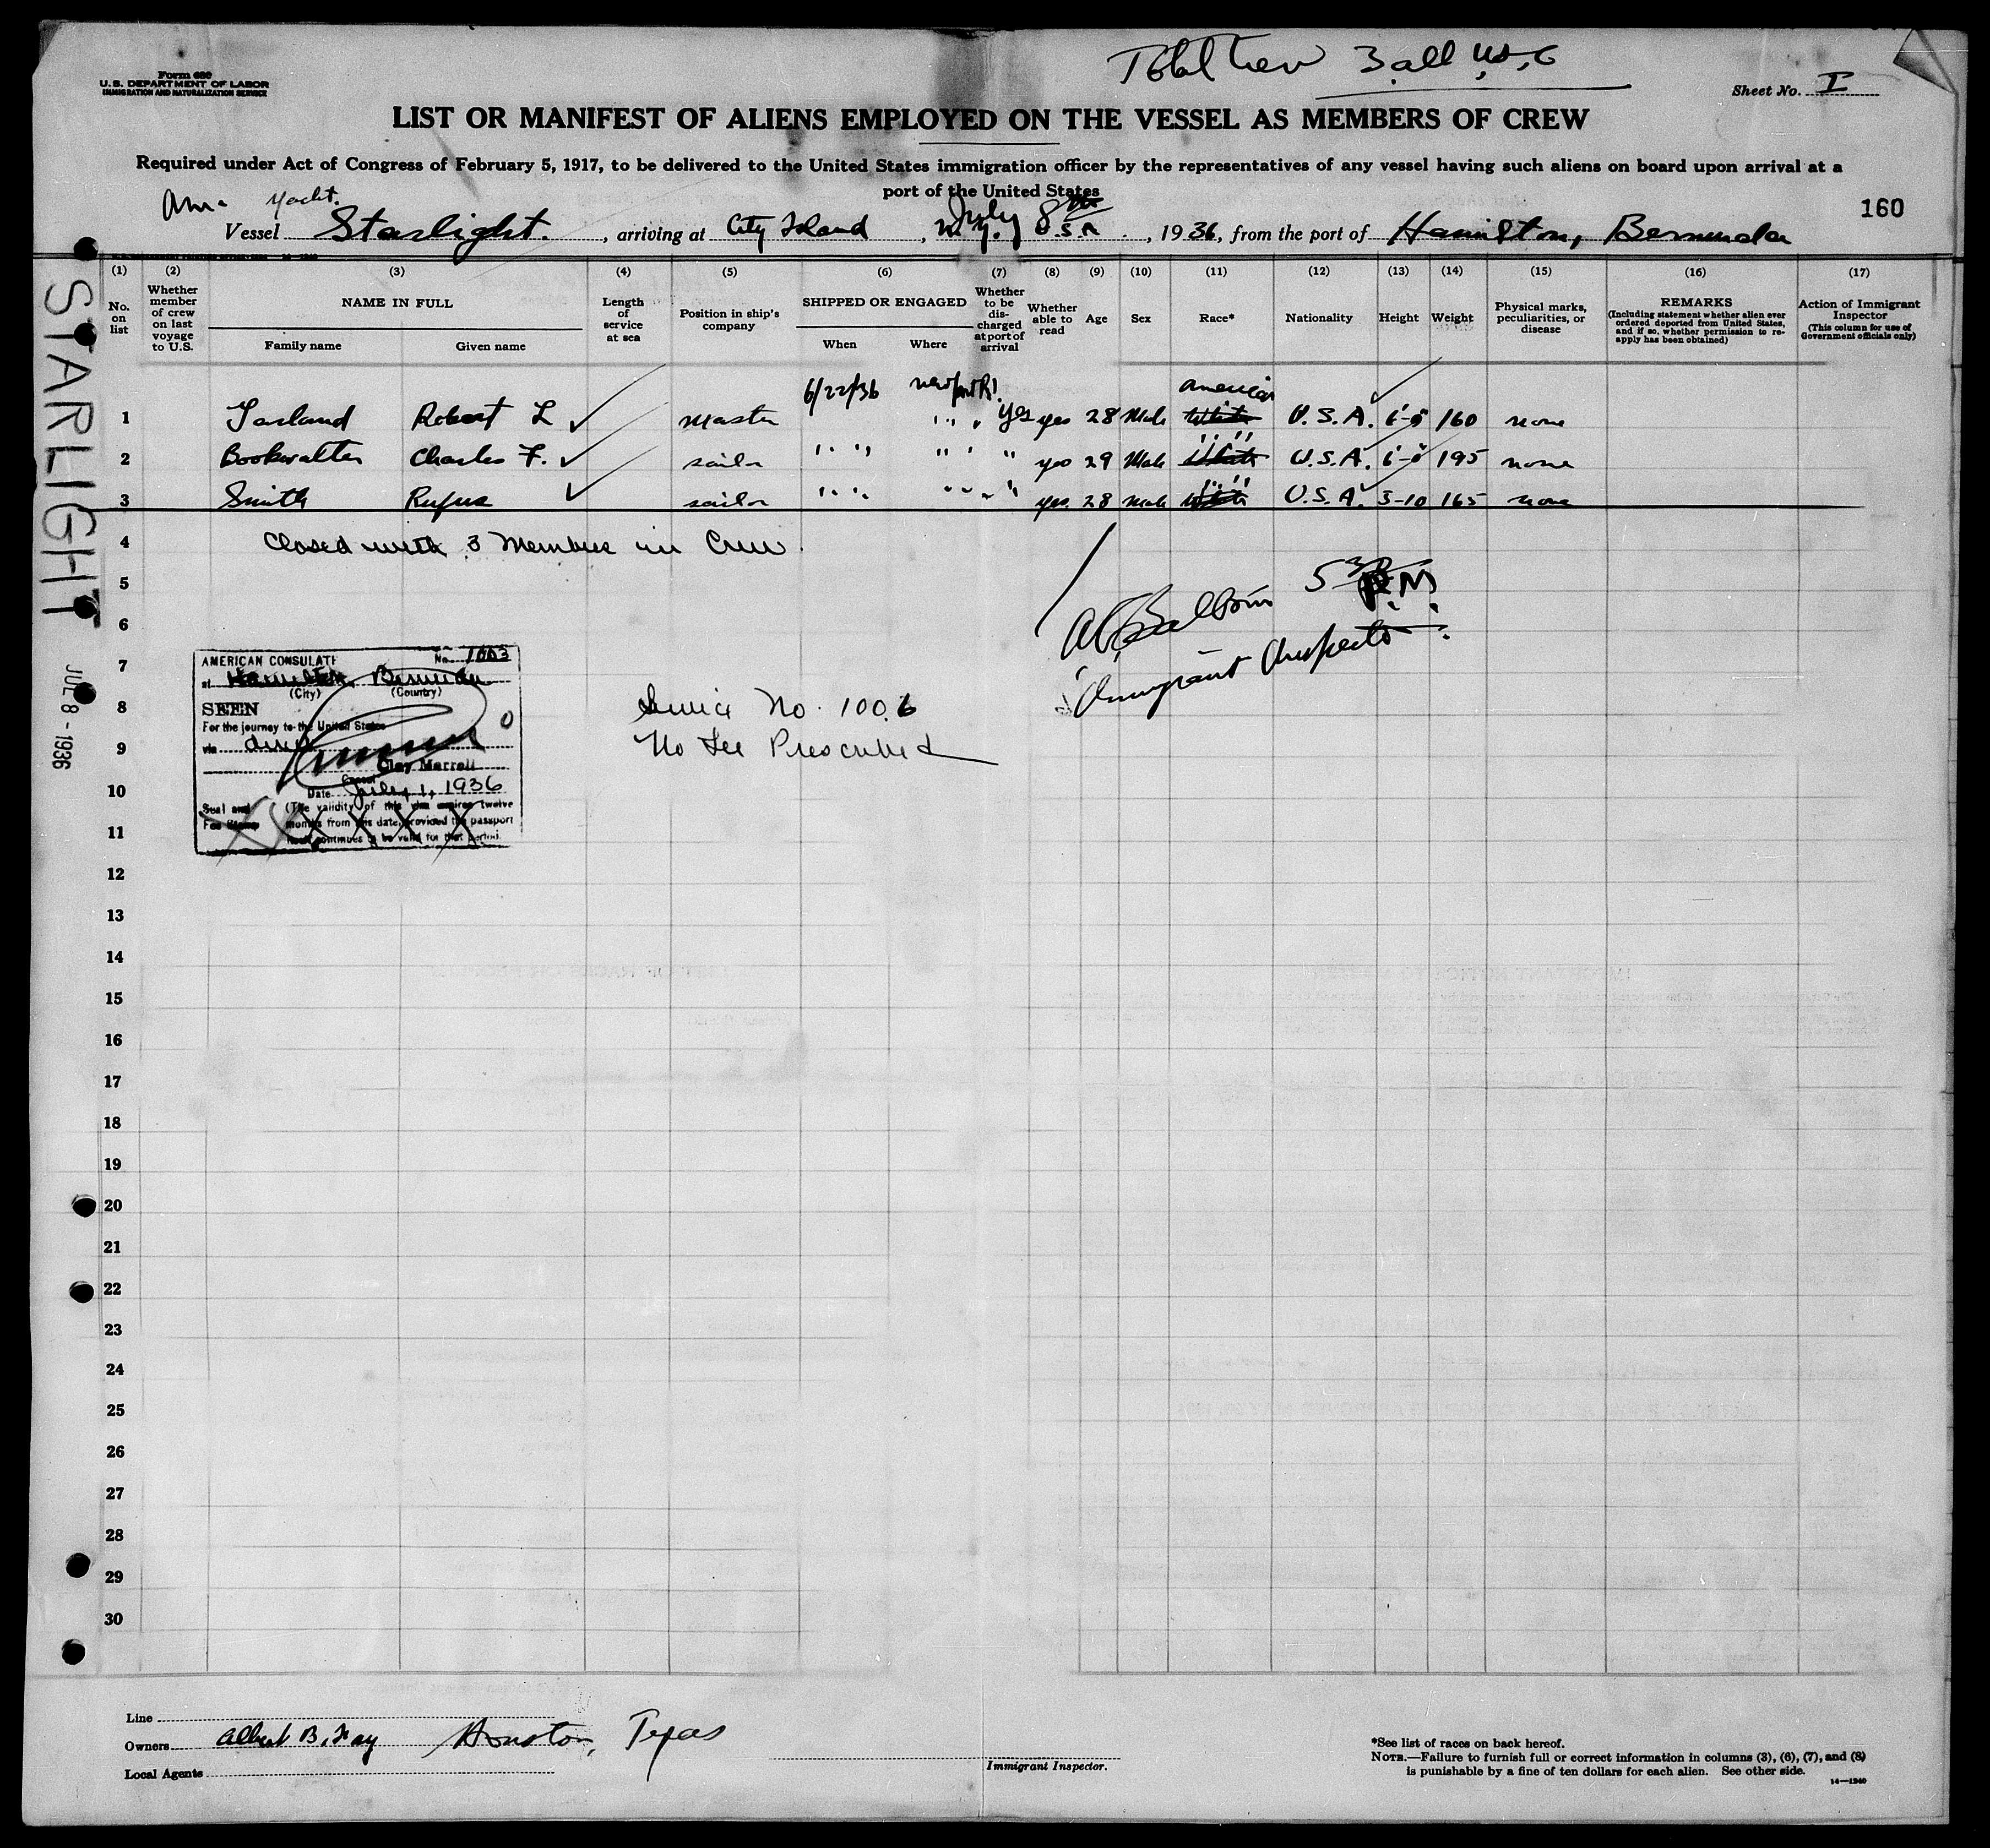 Total Crew 3 all U.S.C
Form 680
U.S. DEPARTMENT OF LABOR
IMMIGRATION AND NATURALIZATION SERVICE
Sheet No. I
LIST OR MANIFEST OF ALIENS EMPLOYED ON THE VESSEL AS MEMBERS OF CREW
Required under Act of Congress of February 5, 1917, to be delivered to the United States immigration officer by the representatives of any vessel having such aliens on board upon arrival at a
port of the United States
Am. Yacht.
160
Vessel Starlight. , arriving at City Island , N.Y. U.S.A. July 8th , 1936, from the port of Hamilton, Bermuda
STARLIGHT
JUL 8 - 1936
(1) (2) (3) (4) (5) (6) (7) (8) (9) (10) (11) (12) (13) (14) (15) (16) (17)
No. on list
Whether member of crew on last voyage to U.S.
NAME IN FULL
Family name Given name
Length of service at sea
Position in ship's company
SHIPPED OR ENGAGED
When Where
Whether to be discharged at port of arrival
Whether able to read
Age
Sex
Race*
Nationality
Height
Weight
Physical marks, peculiarities, or disease
REMARKS
(Including statement whether alien ever ordered deported from United States, and if so, whether permission to reapply has been obtained)
Action of Immigrant Inspector
(This column for use of Government officials only)
6/22/36 Newport R.I. American
1 Robert L Master " " " yes yes 28 Male White U.S.A. 6-0 160 none
2 Bookwalter Charles F. sailor " " " " " " yes 29 Male White " " U.S.A. 6-0 195 none
3 Smith Rufus sailor " " " " " " yes 28 Male White " " U.S.A. 5-10 165 none
4 Closed with 3 Members in Crew.
5
6
7
8
9
10
11
12
13
14
15
16
17
18
19
20
21
22
23
24
25
26
27
28
29
30
5 30 P.M.
Immigrant Inspector
AMERICAN CONSULATE No. 1003
at Hamilton, Bermuda
(City) (Country)
SEEN
For the journey to the United States
via direct
Clay Merrell
Consul
Date July 1, 1936
Seal and (The validity of this visa expires twelve
Fee Stamp months from this date, provided the passport
continues to be valid for that period.
Service No. 1006
No Fee Prescribed
Line
Owners Albert B. Fay Houston, Texas
Local Agents
Immigrant Inspector.
*See list of races on back hereof.
NOTE.—Failure to furnish full or correct information in columns (3), (6), (7), and (8)
is punishable by a fine of ten dollars for each alien. See other side.
14—1240